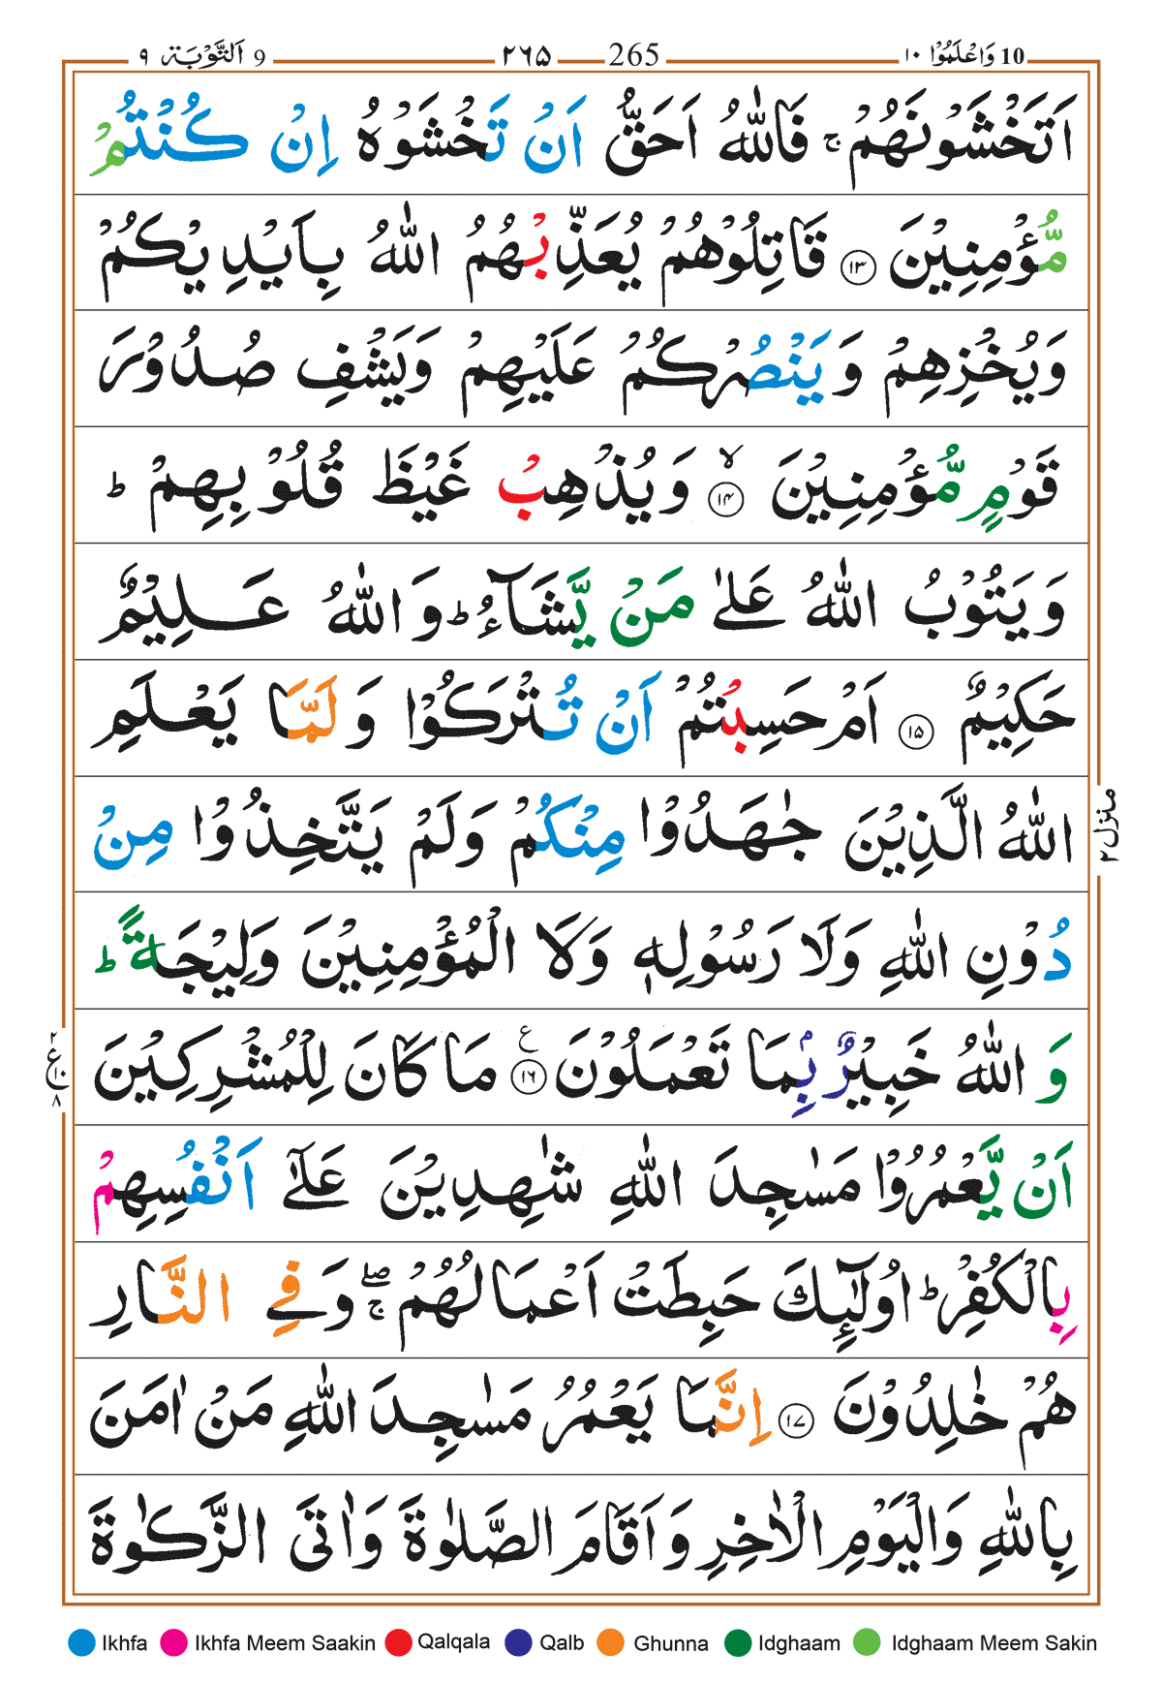 10 وَاعْلَمُوْٓا ١٠ 265 ٢٦٥ 9 اَلتَّوْبَة ٩
اَتَخْشَوْنَهُمْ ۚ فَاللّٰهُ اَحَقُّ اَنْ تَخْشَوْهُ اِنْ كُنْتُمْ
مُّؤْمِنِيْنَ ۝١٣ قَاتِلُوْهُمْ يُعَذِّبْهُمُ اللّٰهُ بِاَيْدِيْكُمْ
وَيُخْزِهِمْ وَيَنْصُرْكُمْ عَلَيْهِمْ وَيَشْفِ صُدُوْرَ
قَوْمٍ مُّؤْمِنِيْنَ ۙ۝١٤ وَيُذْهِبْ غَيْظَ قُلُوْبِهِمْ ؕ
وَيَتُوْبُ اللّٰهُ عَلٰى مَنْ يَّشَآءُ ؕ وَاللّٰهُ عَلِيْمٌ
حَكِيْمٌ ۝١٥ اَمْ حَسِبْتُمْ اَنْ تُتْرَكُوْا وَلَمَّا يَعْلَمِ
اللّٰهُ الَّذِيْنَ جٰهَدُوْا مِنْكُمْ وَلَمْ يَتَّخِذُوْا مِنْ
دُوْنِ اللّٰهِ وَلَا رَسُوْلِهٖ وَلَا الْمُؤْمِنِيْنَ وَلِيْجَةً ؕ
وَاللّٰهُ خَبِيْرٌۢ بِمَا تَعْمَلُوْنَ ۝١٦ ع مَا كَانَ لِلْمُشْرِكِيْنَ
اَنْ يَّعْمُرُوْا مَسٰجِدَ اللّٰهِ شٰهِدِيْنَ عَلٰٓى اَنْفُسِهِمْ
بِالْكُفْرِ ؕ اُولٰٓئِكَ حَبِطَتْ اَعْمَالُهُمْ ۖۚ وَفِي النَّارِ
هُمْ خٰلِدُوْنَ ۝١٧ اِنَّمَا يَعْمُرُ مَسٰجِدَ اللّٰهِ مَنْ اٰمَنَ
بِاللّٰهِ وَالْيَوْمِ الْاٰخِرِ وَاَقَامَ الصَّلٰوةَ وَاٰتَى الزَّكٰوةَ
منزل ٢
٢ ع ١٠ ٨
Ikhfa Ikhfa Meem Saakin Qalqala Qalb Ghunna Idghaam Idghaam Meem Sakin